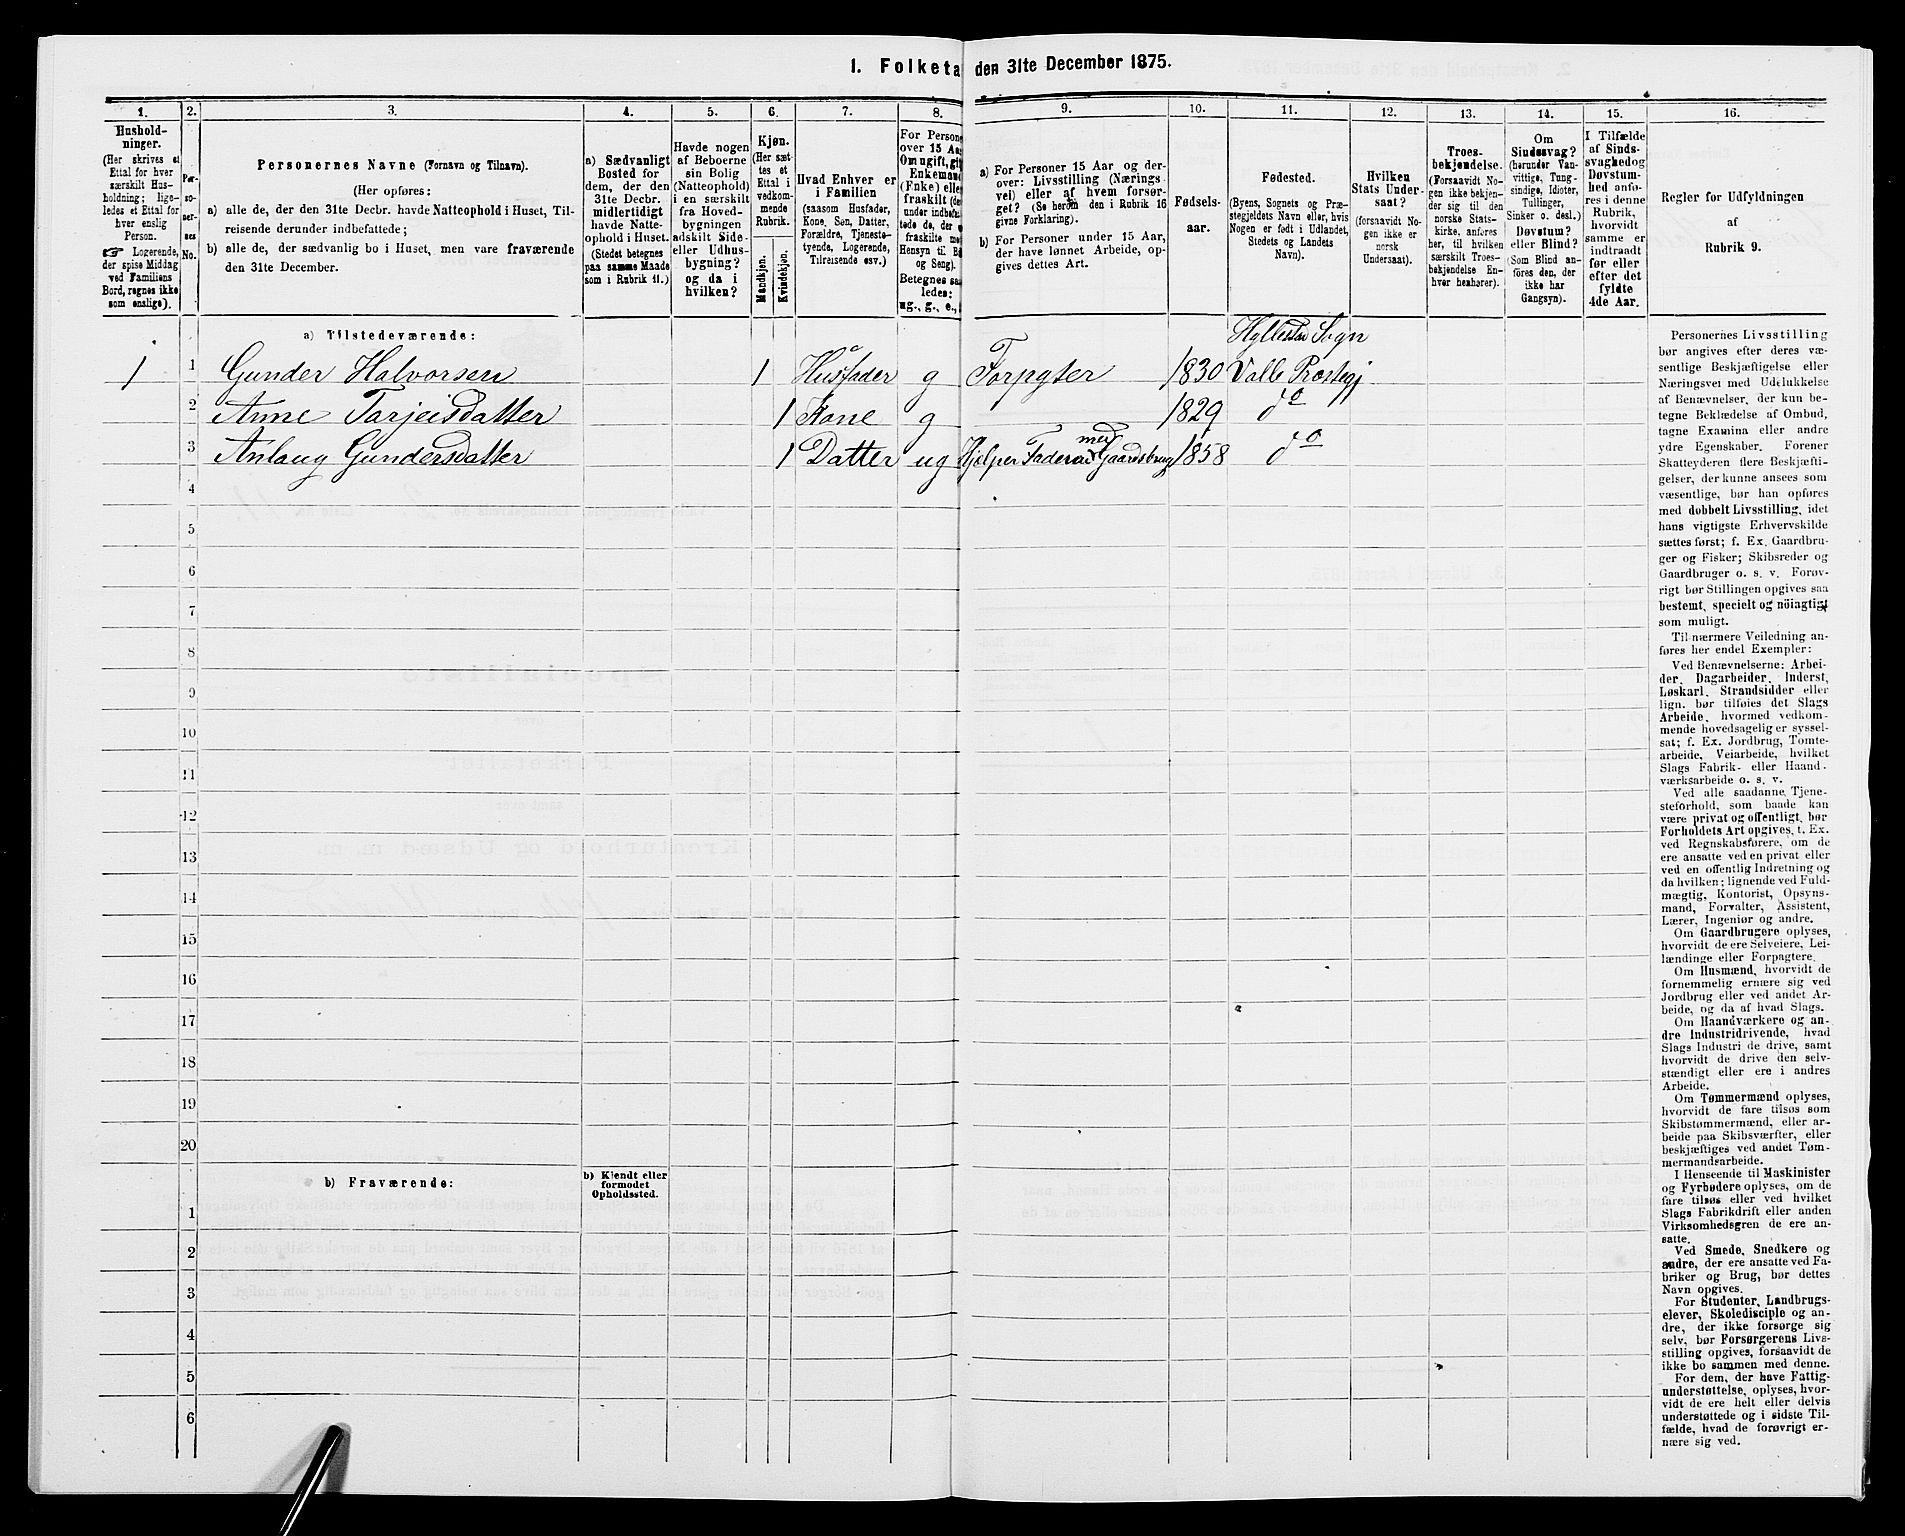 1. Folketa den 31te December 1875.
1. 2. 3. 4. 5. 6. 7. 8. 9. 10. 11. 12. 13. 14. 15. 16.
Hushold-
ninger.
(Her skrives et
Ettal for hver
særskilt Hus-
holdning; lige-
ledes et Ettal for
hver enslig
Person.
☞ Logerende,
der spise Middag
ved Familiens
Bord, regnes ikke
som enslige).
Per-
so-
ner-
nes
No.
Personernes Navne (Fornavn og Tilnavn).
(Her opføres:
a) alle de, der den 31te Decbr. havde Natteophold i Huset, Til-
reisende derunder indbefattede;
b) alle de, der sædvanlig bo i Huset, men vare fraværende
den 31te December.
a) Sædvanligt
Bosted for
dem, der den
31te Decbr.
midlertidigt
havde Natte-
ophold i Huset.
(Stedet betegnes
paa samme Maade
som i Rubrik 11.)
Havde nogen
af Beboerne
sin Bolig
(Natteophold)
i en særskilt
fra Hoved-
bygningen
adskilt Side-
eller Udhus-
bygning?
og da i
hvilken?
Kjøn.
(Her sæt-
tes et
Ettal i
vedkom-
mende
Rubrik.
Mandkjøn.
Kvindekjøn.
Hvad Enhver er
i Familien
(saasom Husfader,
Kone, Søn, Datter,
Forældre, Tjeneste-
tyende, Logerende,
Tilreisende osv.)
For Persone
over 15 Aa
Om ugift, gif
Enkemand
(Enke) elle
fraskilt (de
under indbefa
tede de, der e
fraskilte me
Hensyn til B
og Seng).
Betegnes saa
ledes:
ug., g., e.,
a) For Personer 15 Aar og der-
over: Livsstilling (Nærings-
vei) eller af hvem forsør-
get? (Se herom den i Rubrik 16
givne Forklaring).
b) For Personer under 15 Aar,
der have lønnet Arbeide, op-
gives dettes Art.
Fødsels-
aar.
Fødested.
(Byens, Sognets og Præ-
stegjeldets Navn eller, hvis
Nogen er født i Udlandet,
Stedets og Landets
Navn).
Hvilken
Stats Under-
saat?
(forsaavidt No-
gen ikke er
norsk
Undersaat).
Troes-
bekjendelse.
(Forsaavidt No-
gen ikke bekjen-
der sig til den
norske Stats-
kirke, anføres
her, til hvilken
særskilt Troes-
bekjendelse En-
hver henhører).
Om
Sindssvag?
(herunder Van-
vittige, Tung-
sindige, Idioter,
Sinker o. desl.)
Døvstum?
eller Blind?
(Som Blind an-
føres den, der
ikke har
Gangsyn).
I Tilfælde
af Sinds-
svaghed og
Døvstum-
hed anfø-
res i denne
Rubrik,
hvorvidt
samme er
indtraadt
før eller
efter det
fyldte
4de Aar.
Regler for Udfyldningen
af
Rubrik 9.
a) Tilstedeværende:
Hyllestad Sogn
1 1 Gunder Halvorsen 1 Husfader g Forpagter 1830 Valle Præstegj
2 Anne Tarjeisdatter 1 Kone g 1829 do
3 Anlaug Gundersdatter 1 Datter ug Hjelper Faderen med Gaardsbrug 1858 do
4
5
6
7
8
9
10
11
12
13
14
15
16
17
18
19
20
b) Fraværende:
b) Kjendt eller
formodet
Opholdssted.
1
2
3
4
5
6
Personernes Livsstilling
bør angives efter deres væ-
sentlige Beskjæftigelse eller
Næringsvei med Udelukkelse
af Benævnelser, der kun be-
tegne Beklædelse af Ombud,
tagne Examina eller andre
ydre Egenskaber. Forener
Skatteyderen flere Beskjæfti-
gelser, der kunne ansees som
væsentlige, bør han opføres
med dobbelt Livsstilling, idet
hans vigtigste Erhvervskilde
sættes først; f. Ex. Gaardbru-
ger og Fisker; Skibsreder og
Gaardbruger o. s. v. Forøv-
rigt bør Stillingen opgives saa
bestemt, specielt og nöiagtigt
som muligt.
Til nærmere Veiledning an-
føres her endel Exempler:
Ved Benævnelserne: Arbei-
der, Dagarbeider, Inderst,
Løskarl, Strandsidder eller
lign. bør tilføies det Slags
Arbeide, hvormed vedkom-
mende hovedsagelig er syssel-
sat; f. Ex. Jordbrug, Tomte-
arbeide, Veiarbeide, hvilket
Slags Fabrik- eller Haand-
værksarbeide o. s. v.
Ved alle saadanne Tjene-
steforhold, som baade kan
være privat og offentligt, bør
Forholdets Art opgives, t. Ex.
ved Regnskabsførere, om de
ere ansatte ved en privat eller
ved en offentlig Indretning og
da hvilken; lignende ved Fuld-
mægtig, Kontorist, Opsyns-
mand, Forvalter, Assistent,
Lærer, Ingeniør og andre.
Om Gaardbrugere oplyses,
hvorvidt de ere Selveiere, Lei-
lændinge eller Forpagtere.
Om Husmænd, hvorvidt de
fornemmelig ernære sig ved
Jordbrug eller ved andet Ar-
beide, og da af hvad Slags.
Om Haandværkere og an-
dre Industridrivende, hvad
Slags Industri de drive, samt
hvorvidt de drive den selv-
stændigt eller ere i andres
Arbeide.
Om Tømmermænd oplyses,
hvorvidt de fare tilsøs som
Skibstømmermænd, eller ar-
beide paa Skibsværfter, eller
beskjæftiges ved andet Tøm-
mermandsarbeide.
I Henseende til Maskinister
og Fyrbødere oplyses, om de
fare tilsøs eller ved hvilket
Slags Fabrikdrift eller anden
Virksomhedsgren de ere an-
satte.
Ved Smede, Snedkere og
andre, der ere ansatte ved Fa-
briker og Brug, bør dettes
Navn opgives.
For Studenter, Landbrugs-
elever, Skoledisciple og an-
dre, der ikke forsørge sig
selv, bør Forsørgerens Livs-
stilling opgives, forsaavidt de
ikke bo sammen med denne.
For dem, der have Fattig-
understøttelse, oplyses, hvor-
vidt de ere helt eller delvis
understøttede og i sidste Til-
fælde, hvad de forøvrigt er-
nære sig ved.